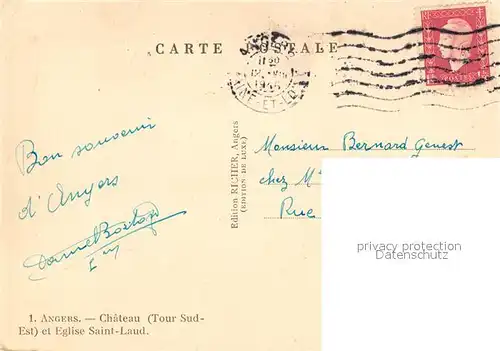 CARTE POSTALE
Bon souvenir
d'Angers
Edition RICHER, Angers
(EDITION DE LUXE)
Monsieur Bernard Genest
chez M
Rue
privacy protection
1. ANGERS. — Château (Tour Sud-
Est) et Eglise Saint-Laud.